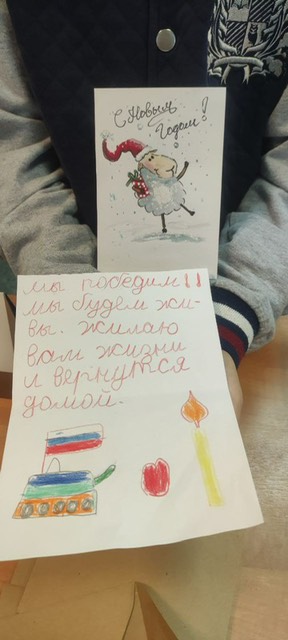 С Новым
Годом!
мы победим!!
мы будем жи-
вы. жилаю
вам жизни
и вернутся
домой.